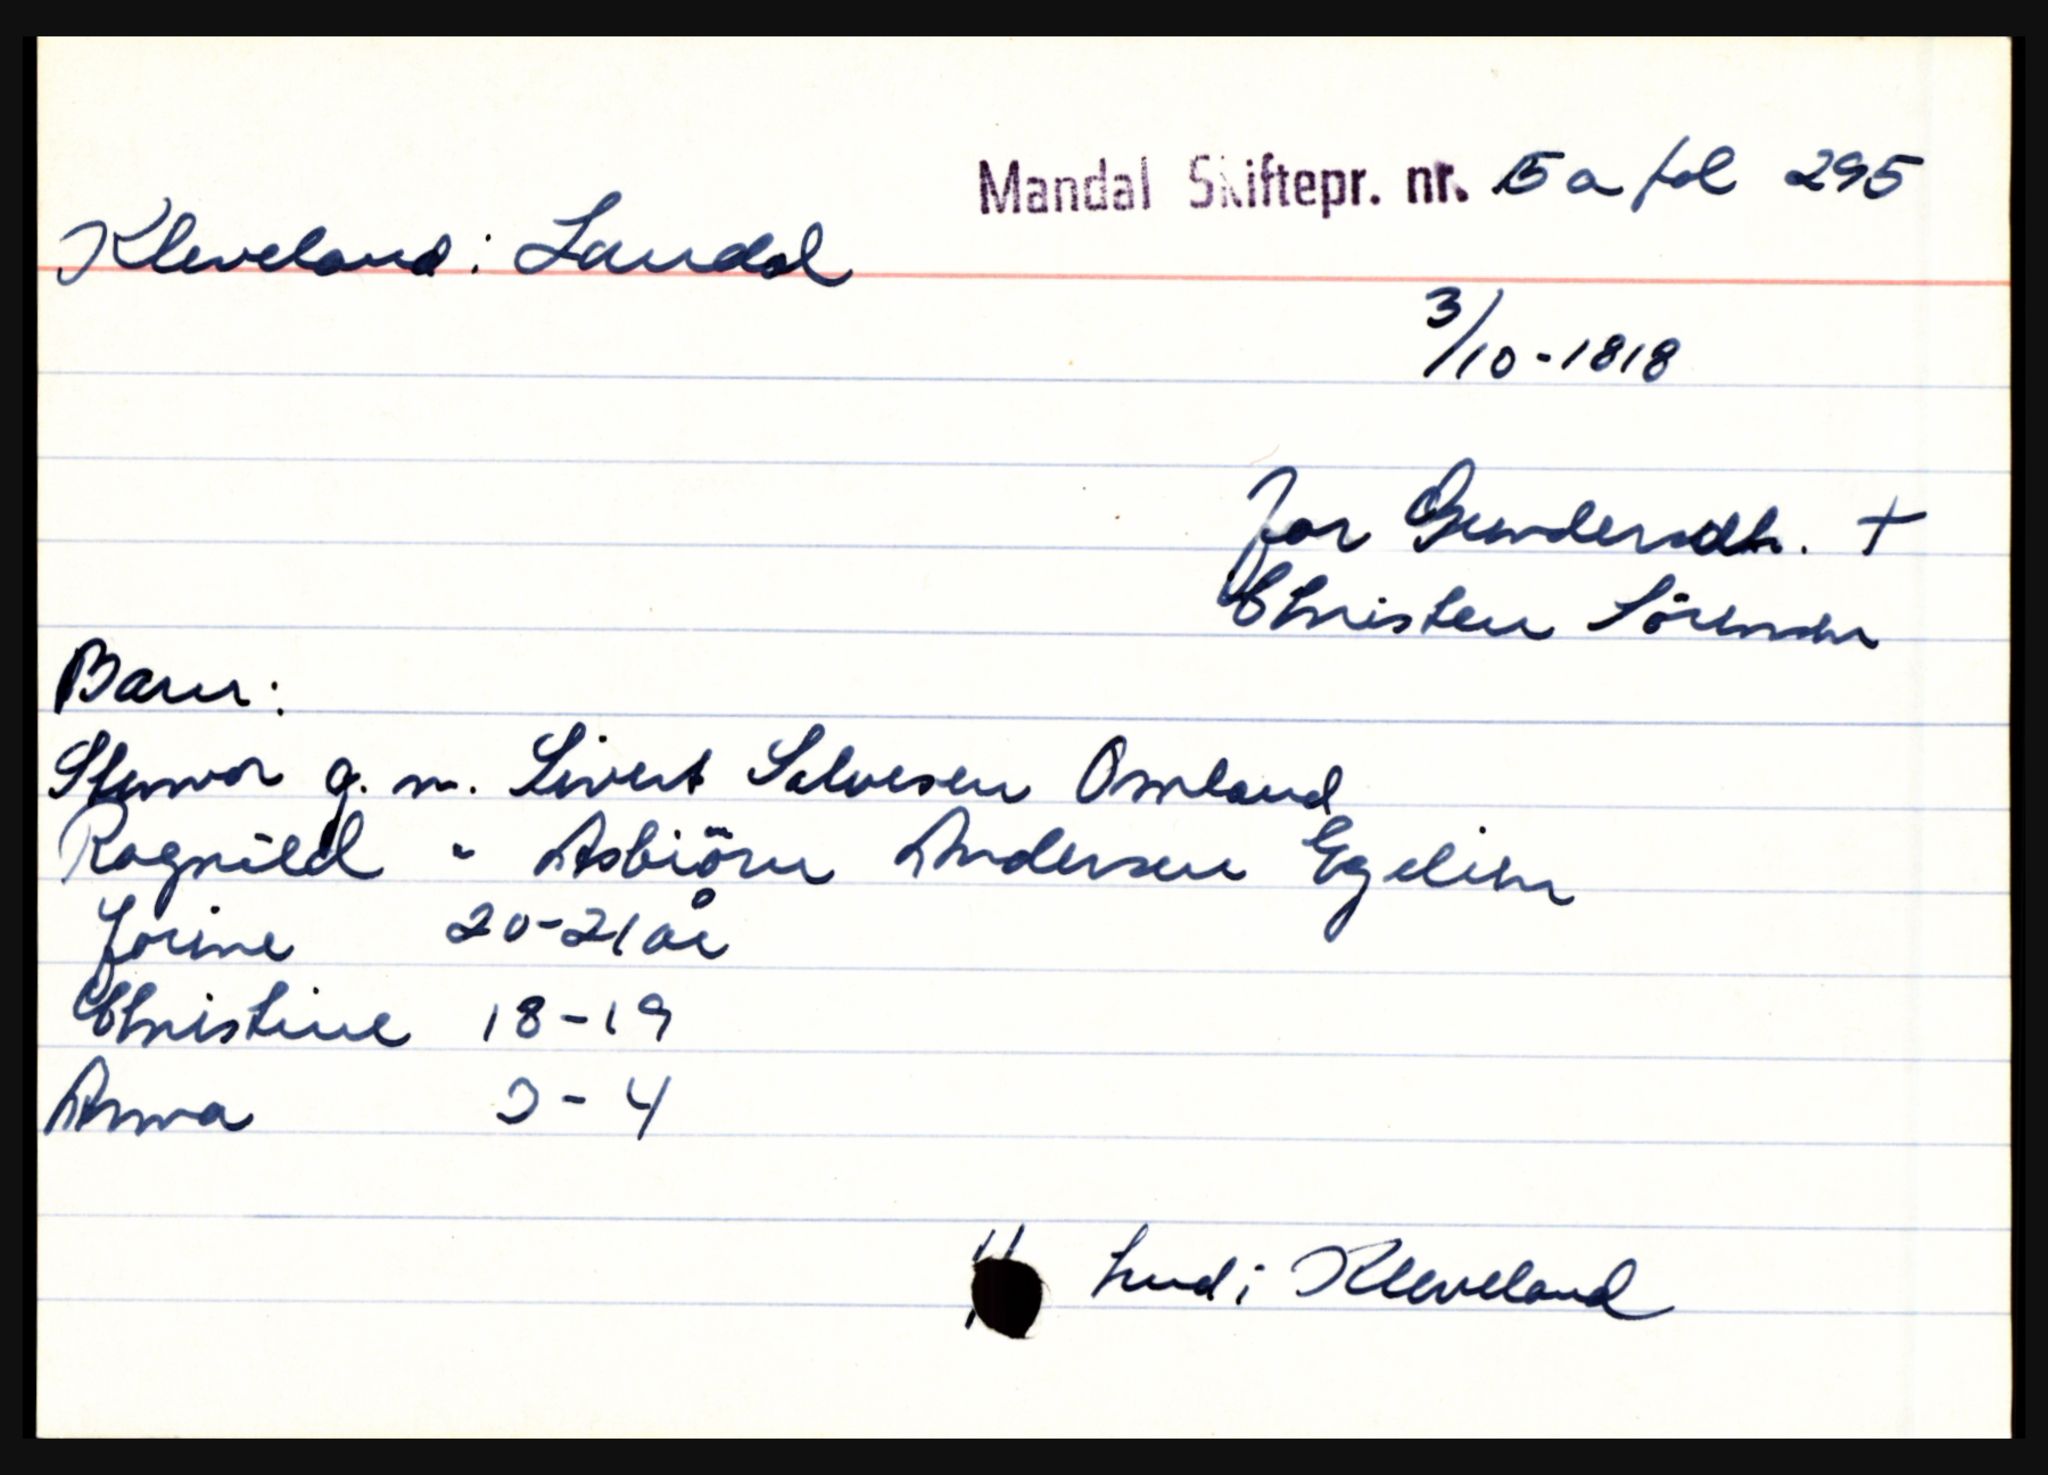 Mandal Skiftepr. nr. 15 a fol 295
Kleveland: Laudal
3/10-1818
Jor Gundersdtr. +
Christen Sörensen
Barn:
Stenvor g. m. Sivert Salvesen Omland
Ragnild " Asbiörn Andersen Egelien
Jorine 20-21 år
Christine 18-19
Anna 3-4
Kleveland